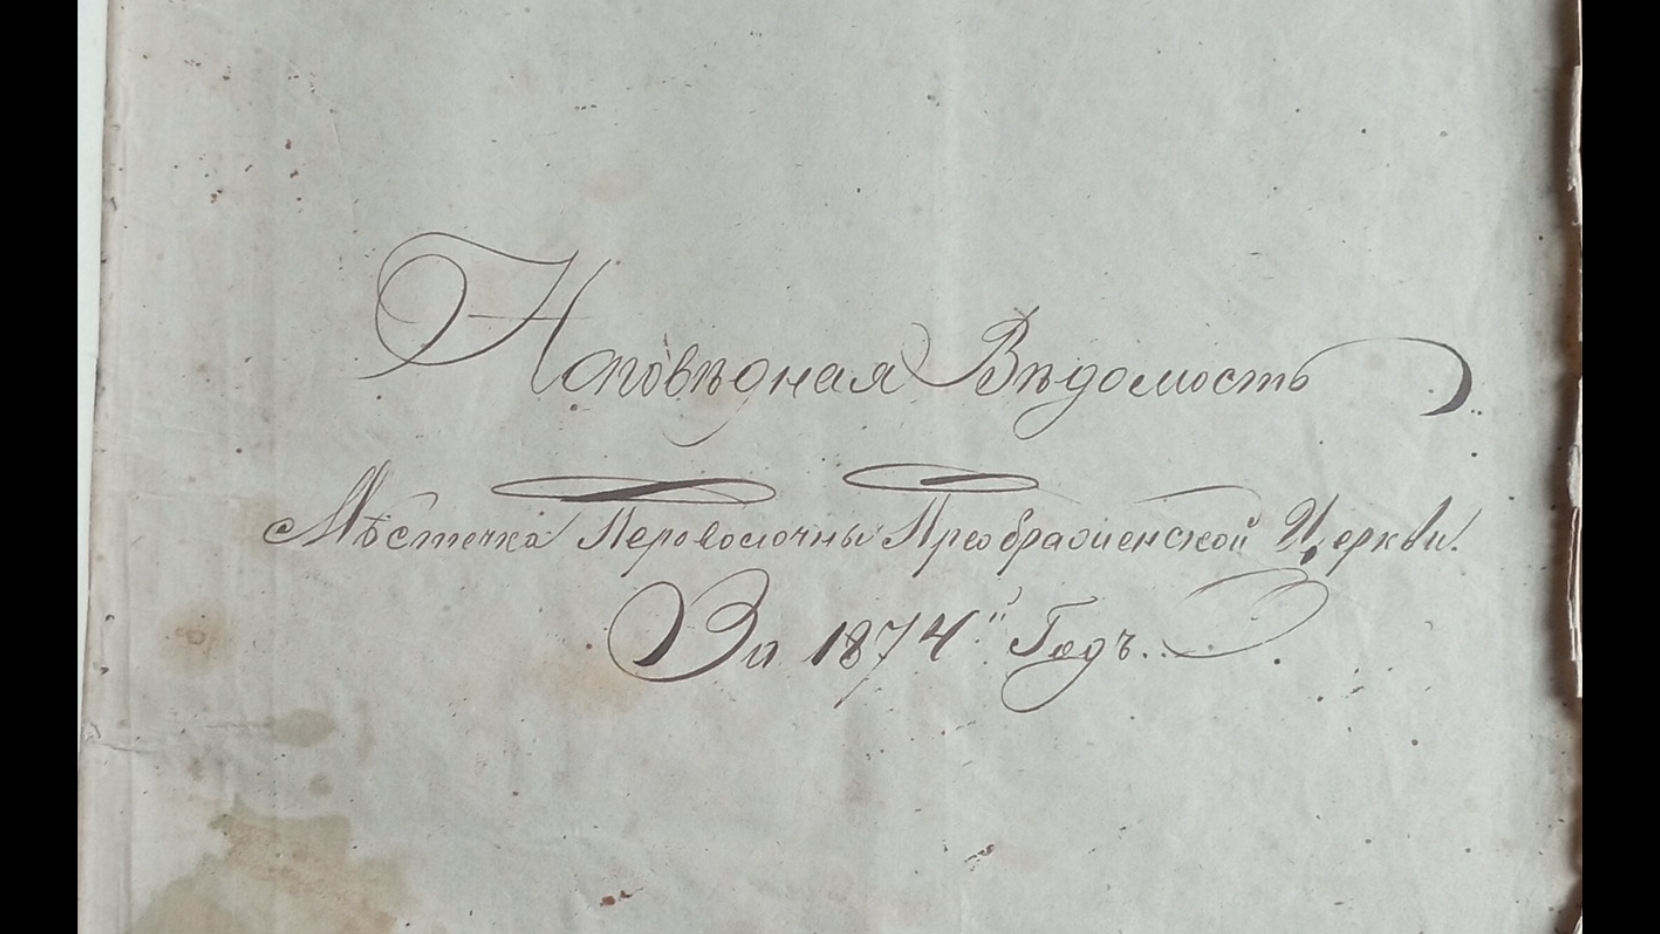 Исповѣдная Вѣдомость
Мѣстечка Переволочны Преображенской Церкви.
За 1874й Годъ.